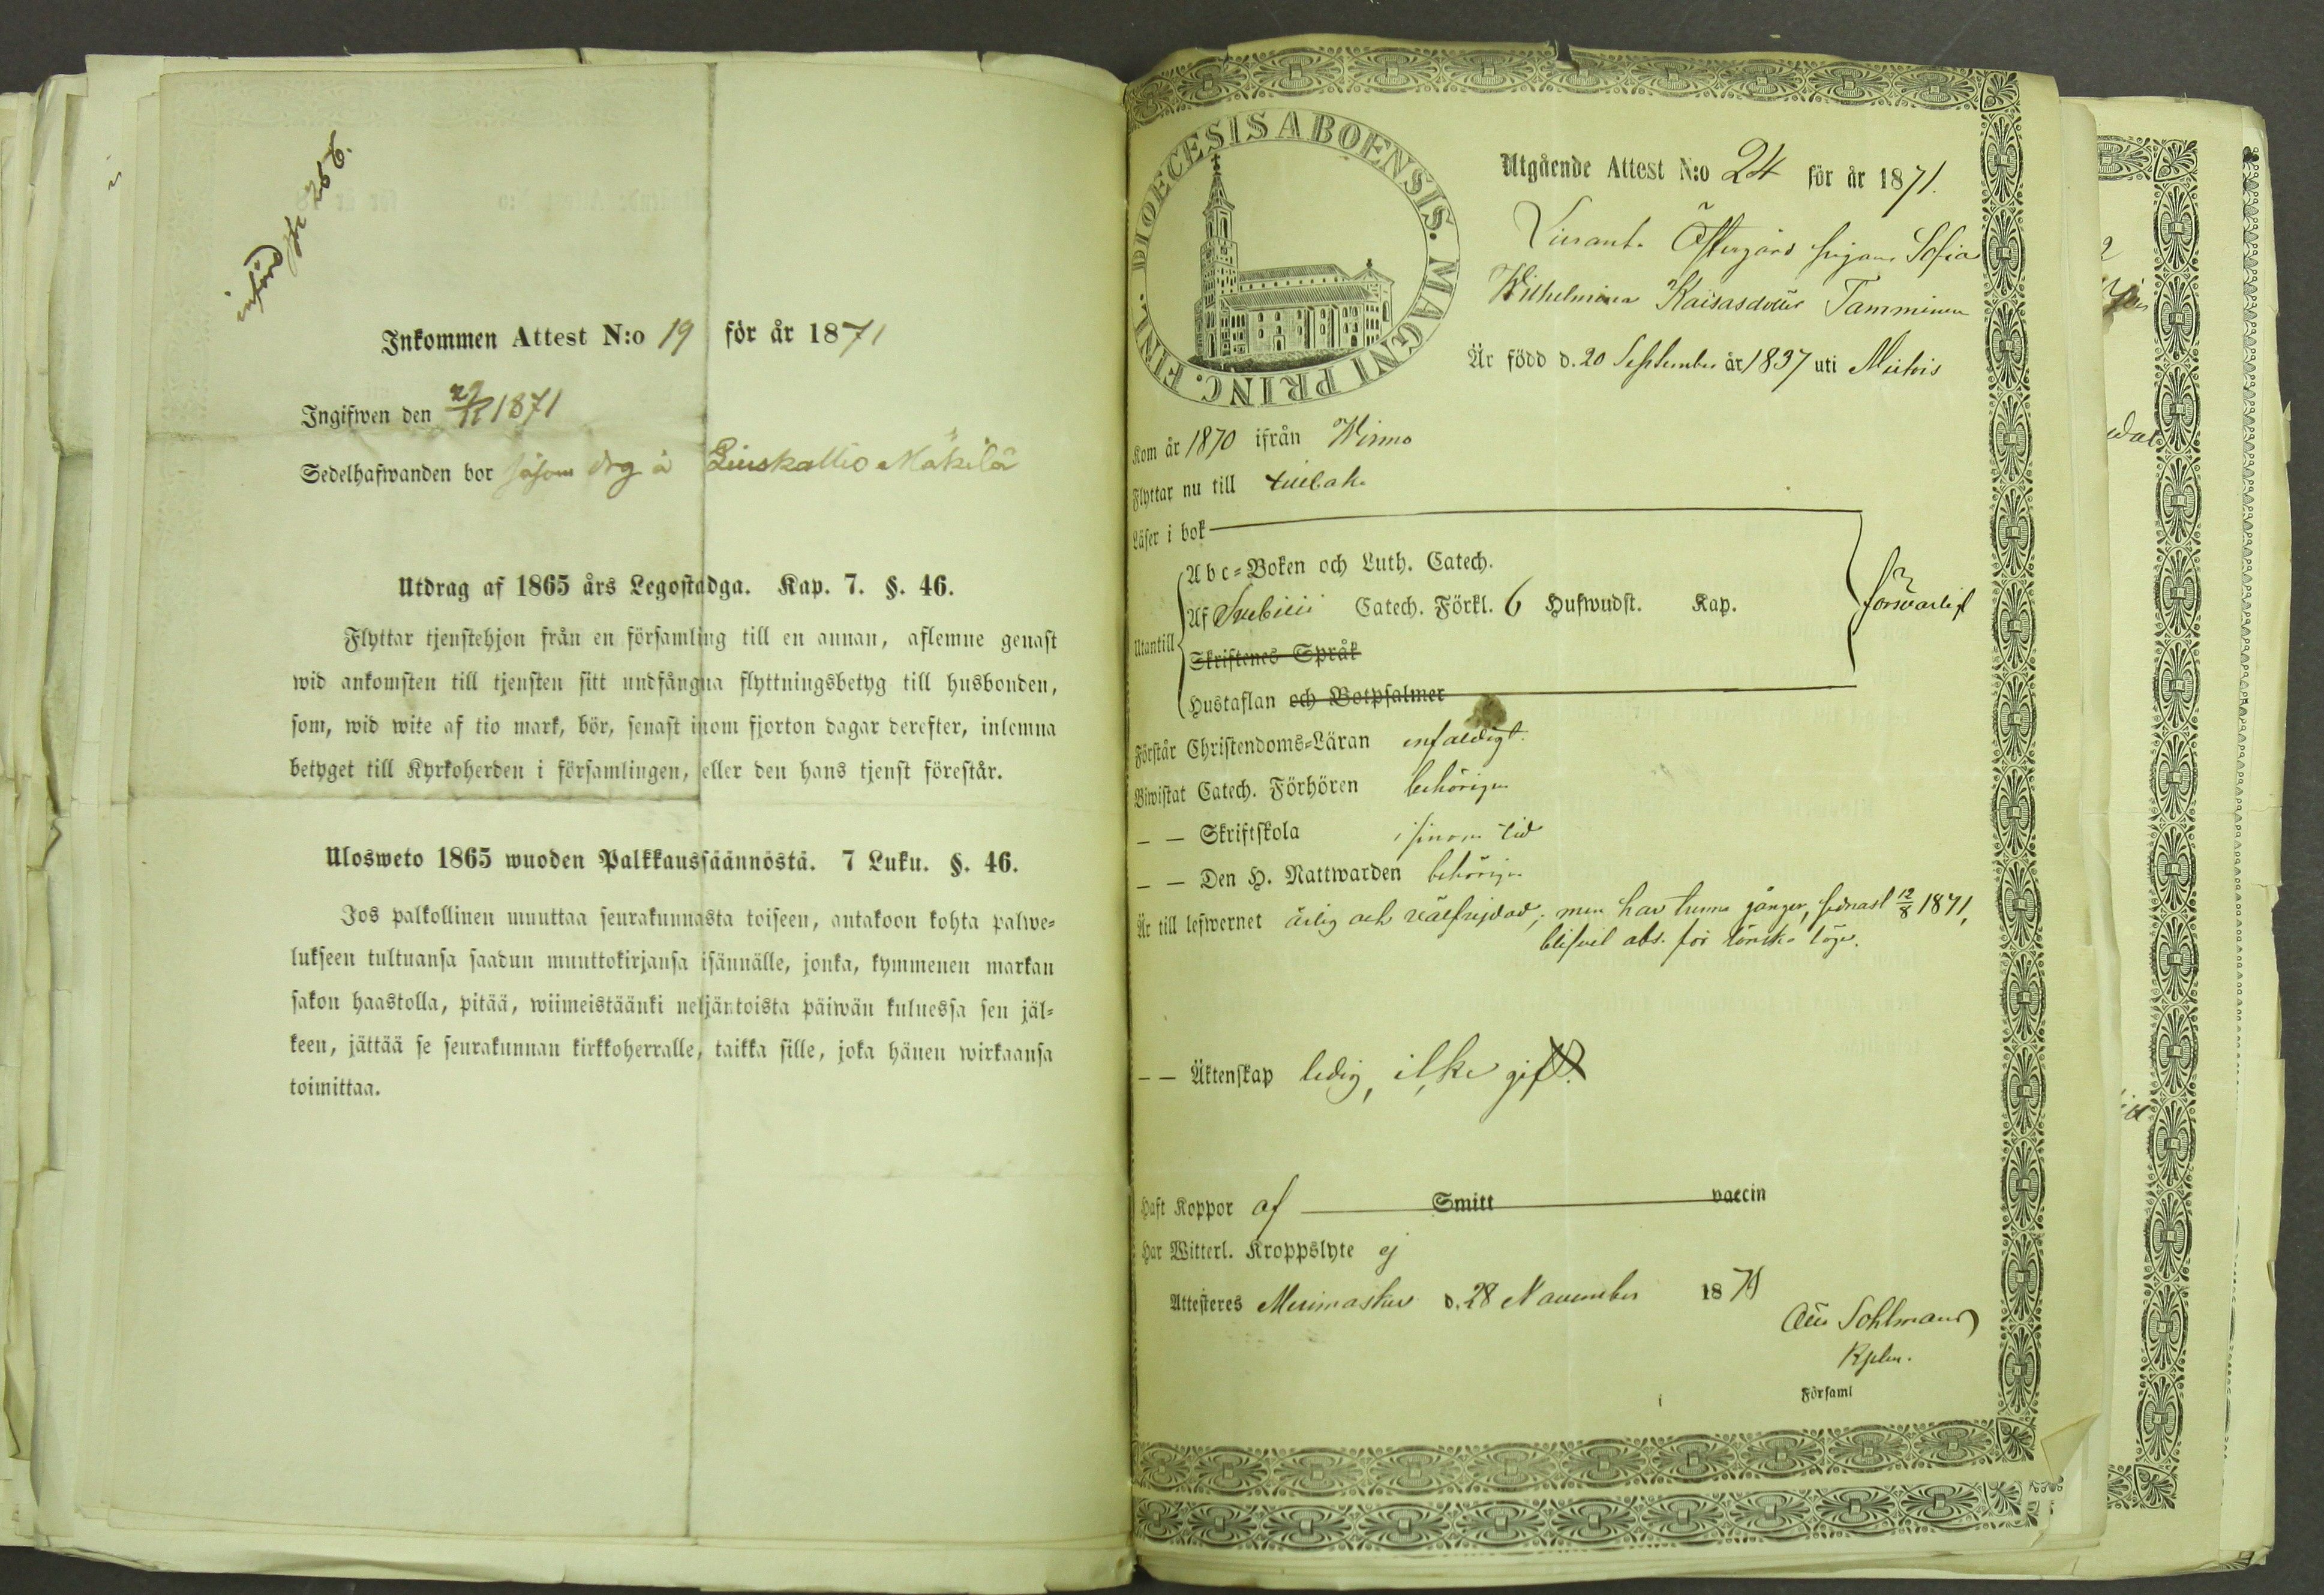 införd
Inkommen Attest N:o 19 för år 1871
Ingifwen den 29/12 1871
Sedelhafwanden bor såsom drg å Liuskallio Mäkilä
Utdrag af 1865 års Legostadga. Kap. 7. §. 46.
Flyttar tjenstehjon från en församling till en annan, aflemne genast
wid ankomsten till tjensten sitt undfångna flyttningsbetyg till husbonden,
som, wid wite af tio mark, bör, senast inom fjorton dagar derefter, inlemna
betyget till Kyrkoherden i församlingen, eller den hans tjenst förestår.
Ulosweto 1865 wuoden Palkkaussäännöstä. 7 Luku. §. 46.
Jos palkollinen muuttaa seurakunnasta toiseen, antakoon kohta palwe-
lukseen tultuansa saadun muuttokirjansa isännälle, jonka, kymmenen markan
sakon haastolla, pitää, wiimeistäänki neljäntoista päiwän kuluessa sen jäl-
keen, jättää se seurakunnan kirkkoherralle, taikka sille, joka hänen wirkaansa
toimittaa.
DIOECESIS ABOENSIS. MAGNI PRINC. FINL.
Utgående Attest N:o 24 för år 1871.
Östergård pigan Sofia
Wilhelmina Kaisasdotter Tamminen
Är född d. 20 September år 1837 uti Mietois
Kom år 1870 ifrån Wirmo
Flyttar nu till tillbaka
Läser i bok
Abc-Boken och Luth. Catech.
Utantill Af Svebilii Catech. Förkl. 6 Hufwudst. Kap. försvarligt
Skriftenes Språk
Hustaflan och Botpsalmer
Förstår Christendoms-Läran enfaldigt.
Biwistat Catech. Förhören behörigen
— — Skriftskola i sinom tid
— — Den H. Nattwarden behörigen
Är till lefwernet ärlig och välfrejdad; men har tvenne gånger, sednast 12/8 1871,
blifvit abs. för lönska läge.
— — Äktenskap ledig, icke gift.
Haft Koppor af Smitt vaccin
Har Witterl. Kroppslyte ej
Attesteres Merimasku d. 28 November 1871
Sohlman
Kplan.
i Församl